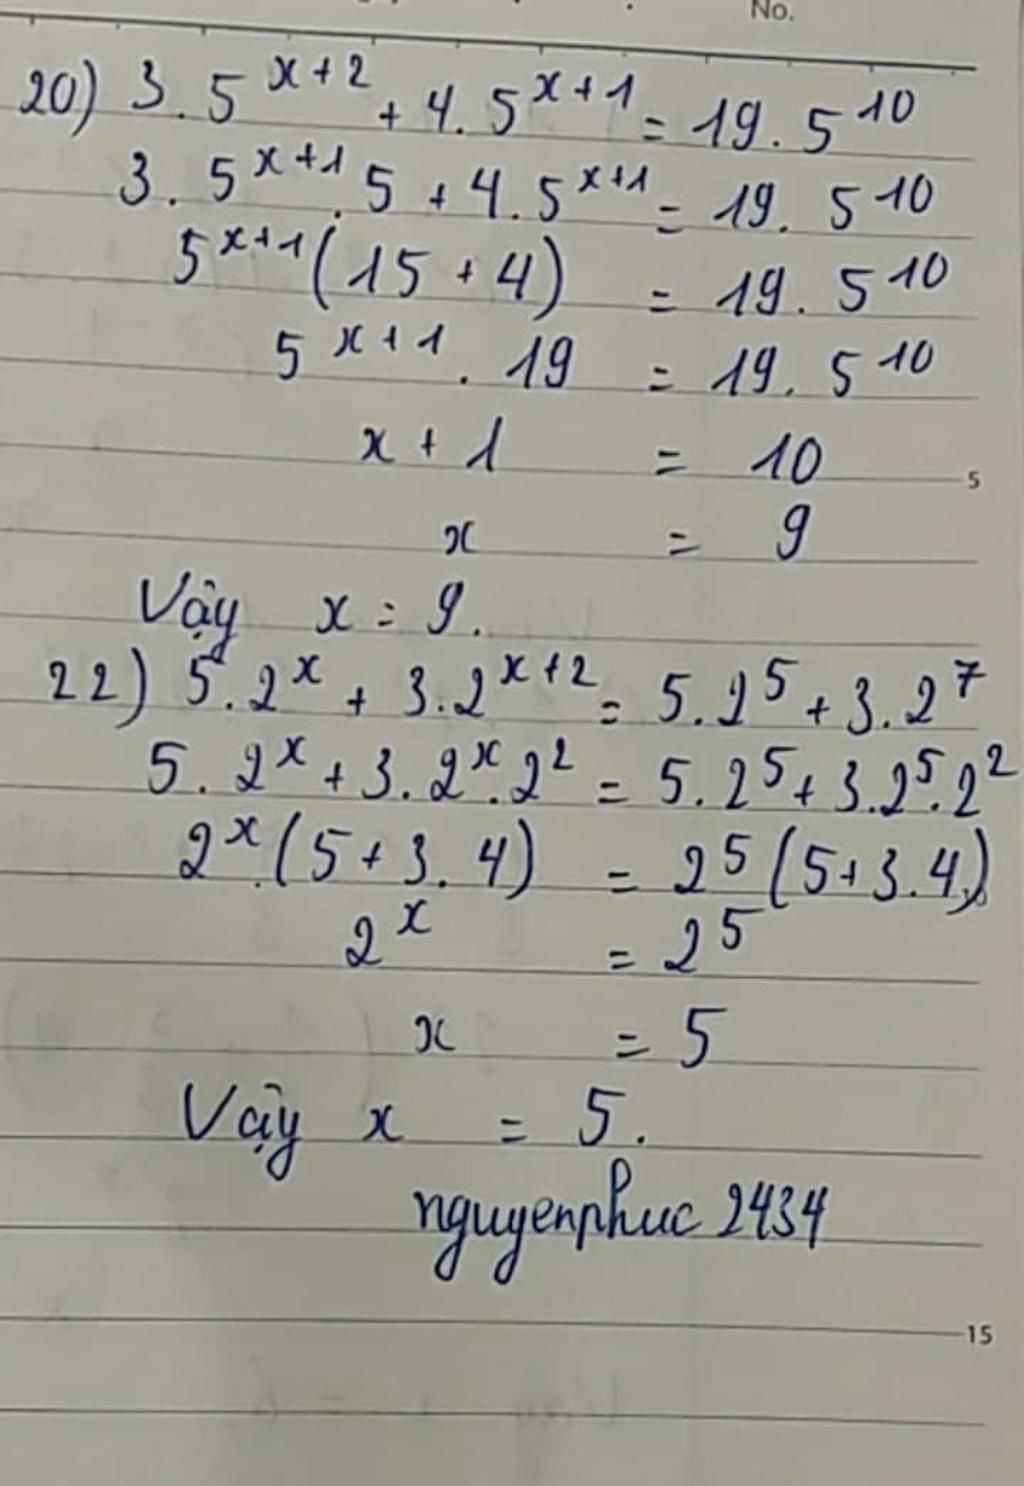 No.
20) 3 . 5^{x+2} + 4 . 5^{x+1} = 19 . 5^{10}
3 . 5^{x+1} . 5 + 4 . 5^{x+1} = 19 . 5^{10}
5^{x+1} (15 + 4) = 19 . 5^{10}
5^{x+1} . 19 = 19 . 5^{10}
x + 1 = 10
5
x = 9
Vậy x = 9.
22) 5 . 2^x + 3 . 2^{x+2} = 5 . 2^5 + 3 . 2^7
5 . 2^x + 3 . 2^x . 2^2 = 5 . 2^5 + 3 . 2^5 . 2^2
2^x . (5 + 3 . 4) = 2^5 (5 + 3 . 4)
2^x = 2^5
x = 5
Vậy x = 5.
nguyenphuc 2434
15